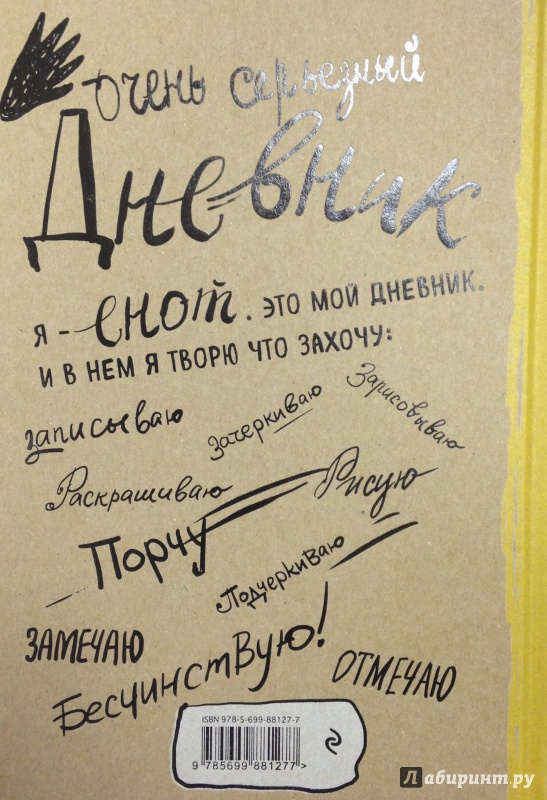 очень серьезный
Дневник
Я - енот. ЭТО МОЙ ДНЕВНИК.
И В НЕМ Я ТВОРЮ ЧТО ЗАХОЧУ:
записываю
Зачеркиваю
Зарисовываю
Раскрашиваю
Рисую
Порчу
Подчеркиваю
ЗАМЕЧАЮ
Бесчинствую!
ОТМЕЧАЮ
ISBN 978-5-699-88127-7
9 785699 881277 >
Лабиринт.ру